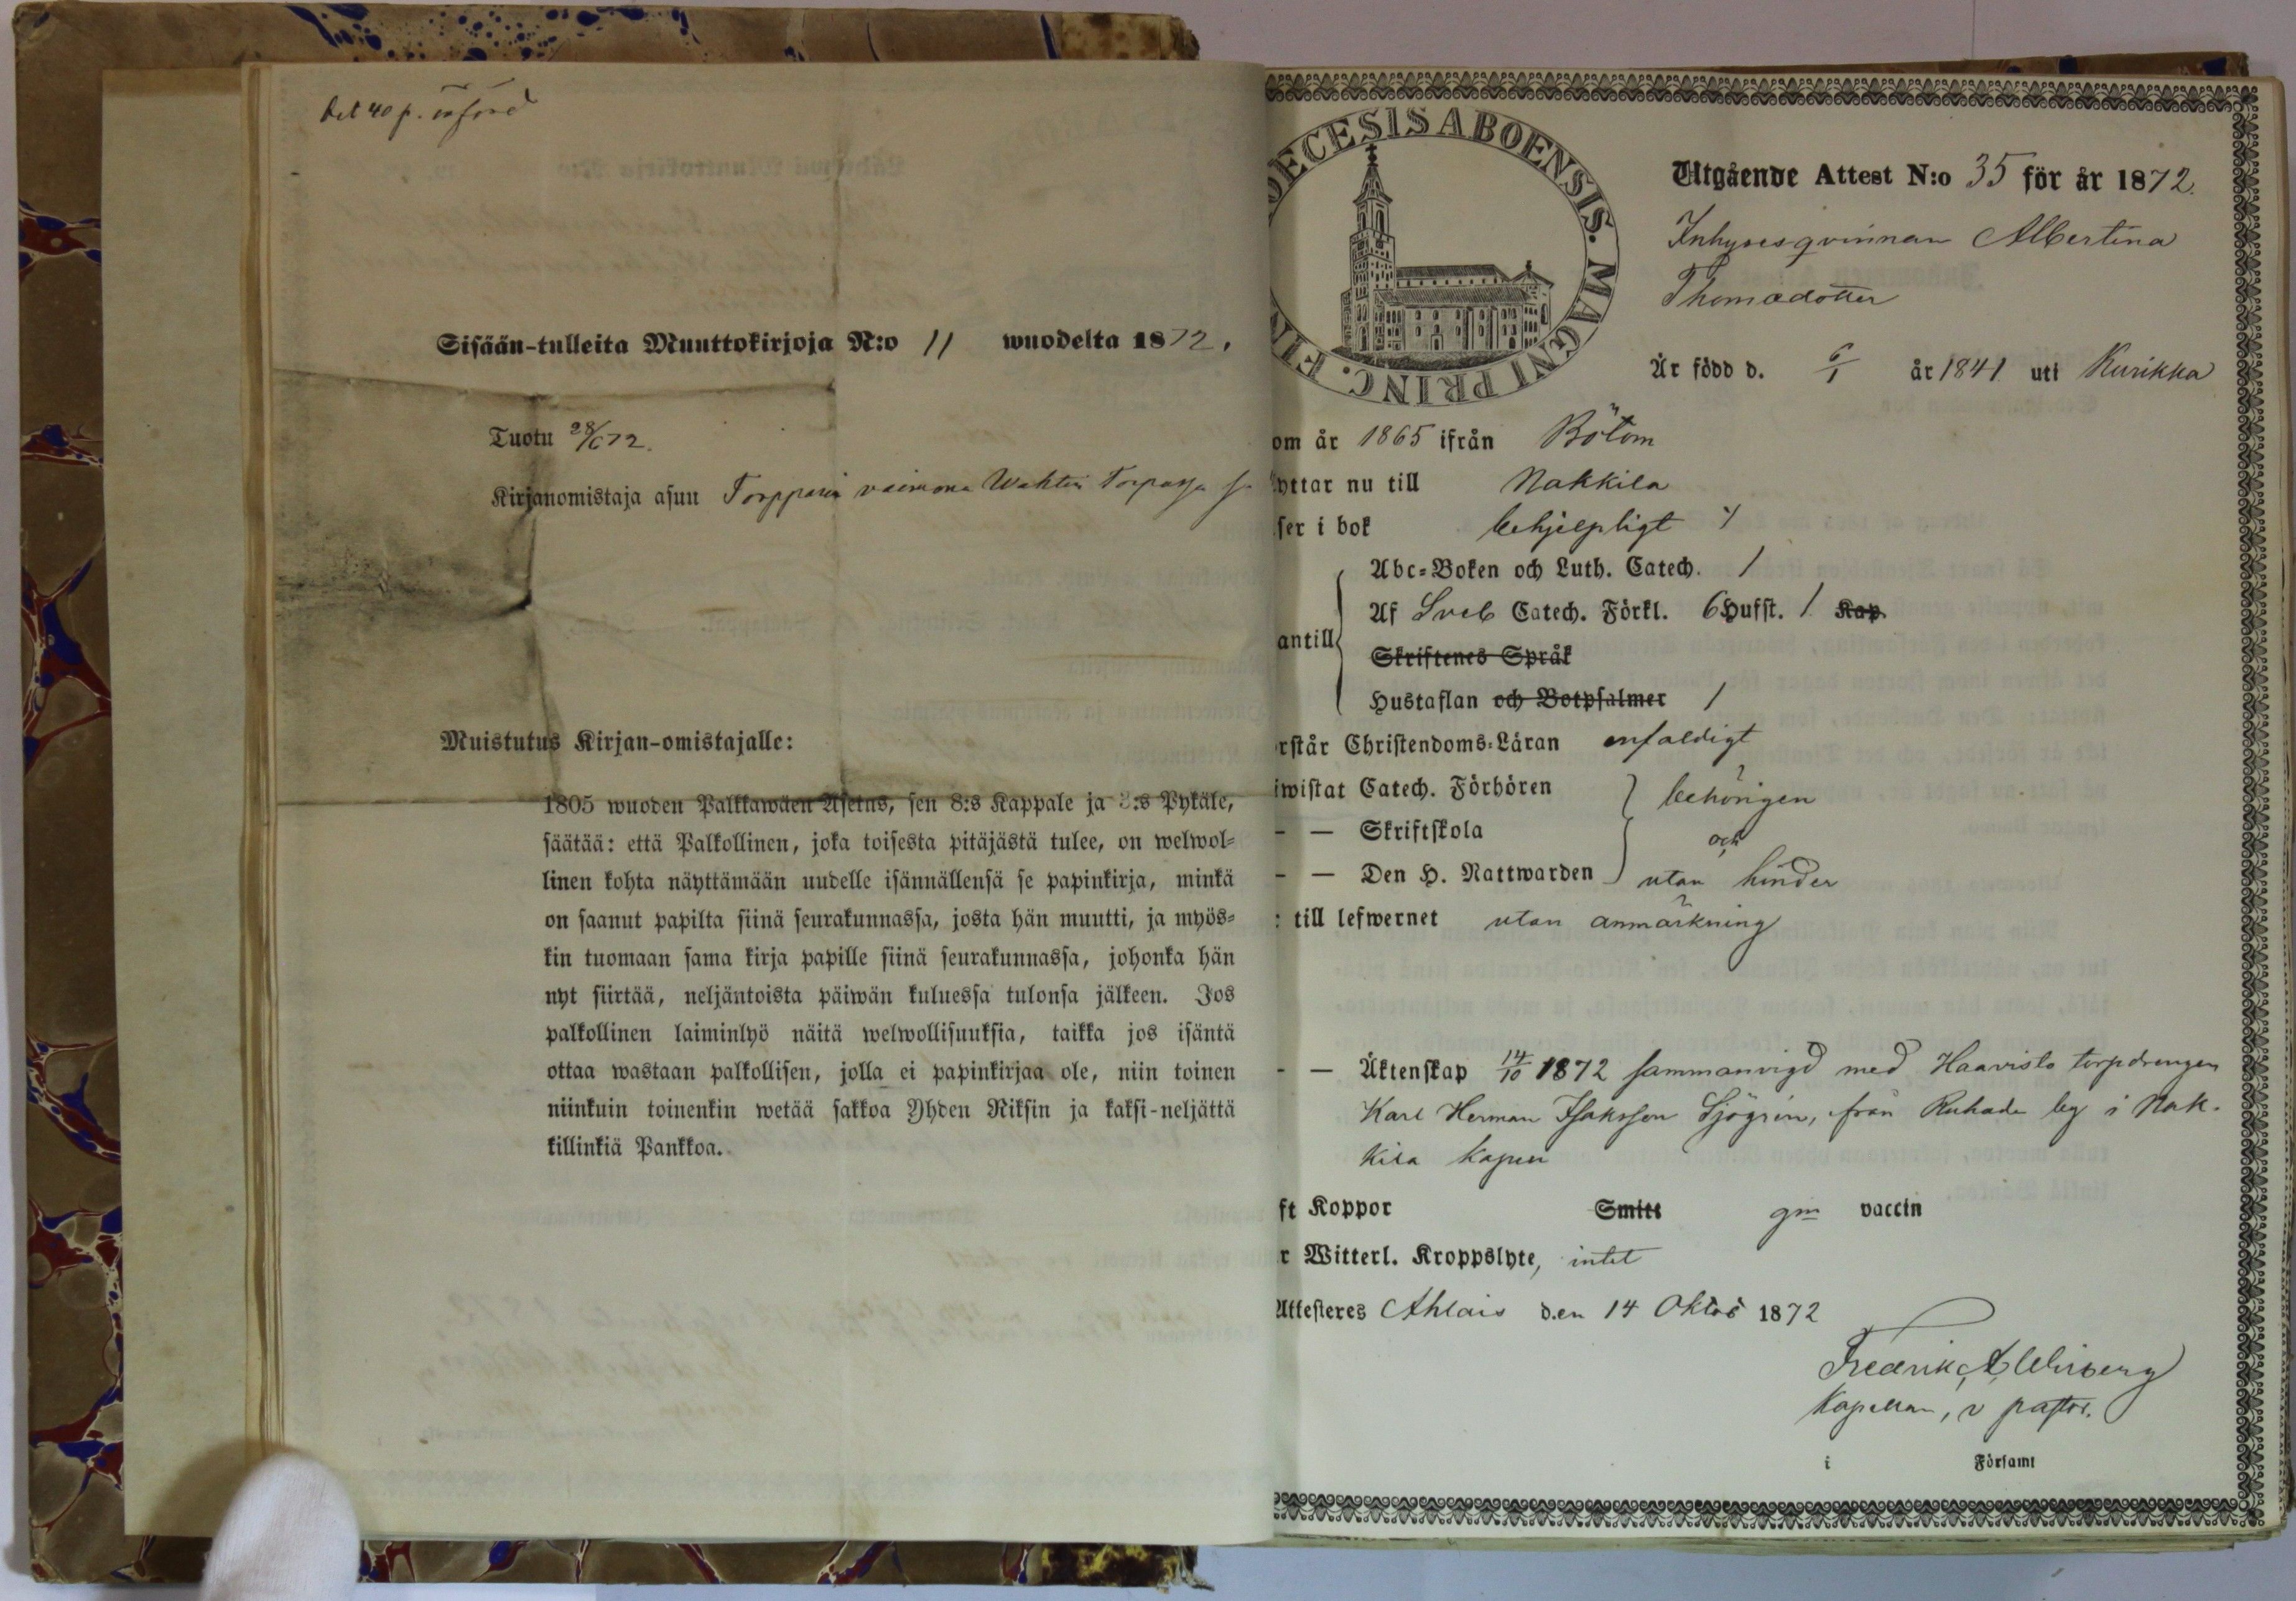 bet 40 p. införd
Sisään-tulleita Muuttokirjoja N:o 11 wuodelta 1872.
Tuotu 28/6 72.
Kirjanomistaja asuu Torpparin vaimona Torpassa
Muistutus Kirjan-omistajalle:
1805 wuoden Palkkawäen Asetus, sen 8:s Kappale ja :s Pykäle,
säätää: että Palkollinen, joka toisesta pitäjästä tulee, on welwol=
linen kohta näyttämään uudelle isännällensä se papinkirja, minkä
on saanut papilta siinä seurakunnassa, josta hän muutti, ja myös=
kin tuomaan sama kirja papille siinä seurakunnassa, johonka hän
nyt siirtää, neljäntoista päiwän kuluessa tulonsa jälkeen. Jos
palkollinen laiminlyö näitä welwollisuuksia, taikka jos isäntä
ottaa wastaan palkollisen, jolla ei papinkirjaa ole, niin toinen
niinkuin toinenkin wetää sakkoa Yhden Riksin ja kaksi-neljättä
killinkiä Pankkoa.
DECESIS ABOENSIS. MAGNI PRINC. FIN
Utgående Attest N:o 35 för år 1872.
Inhysesqvinnan Albertina
Thomædotter
Är född d. 6/1 år 1841 uti Kurikka
om år 1865 ifrån Bötom
yttar nu till Nakkila
ser i bok behjelpligt
Abc=Boken och Luth. Catech. 1
Af Sveb Catech. Förkl. 6 Hufst. 1 Kap.
antill
Skriftenes Språk
Hustaflan och Botpsalmer 1
rstår Christendoms=Läran enfaldigt
iwistat Catech. Förhören behörigen
— — Skriftskola och
— — Den H. Nattwarden utan hinder
: till lefwernet utan anmärkning
— — Äktenskap 14/10 1872 sammanvigd med Haavisto torpdrengen
Karl Herman Isaksson Sjögrén, från Ruhade by i Nak-
kila kapell
ft Koppor Smitt gm vaccin
r Witterl. Kroppslyte, intet
Attesteres Ahlais den 14 Oktob 1872
Fredrik
Kapellan, v pastor.
i Församl